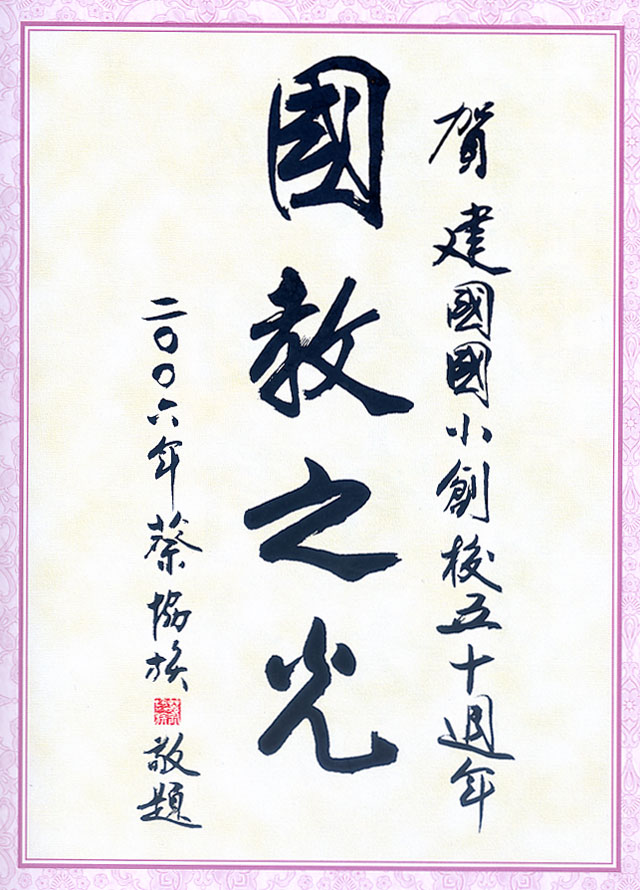 賀建國國小創校五十週年
國教之光
二〇〇六年蔡協族敬題